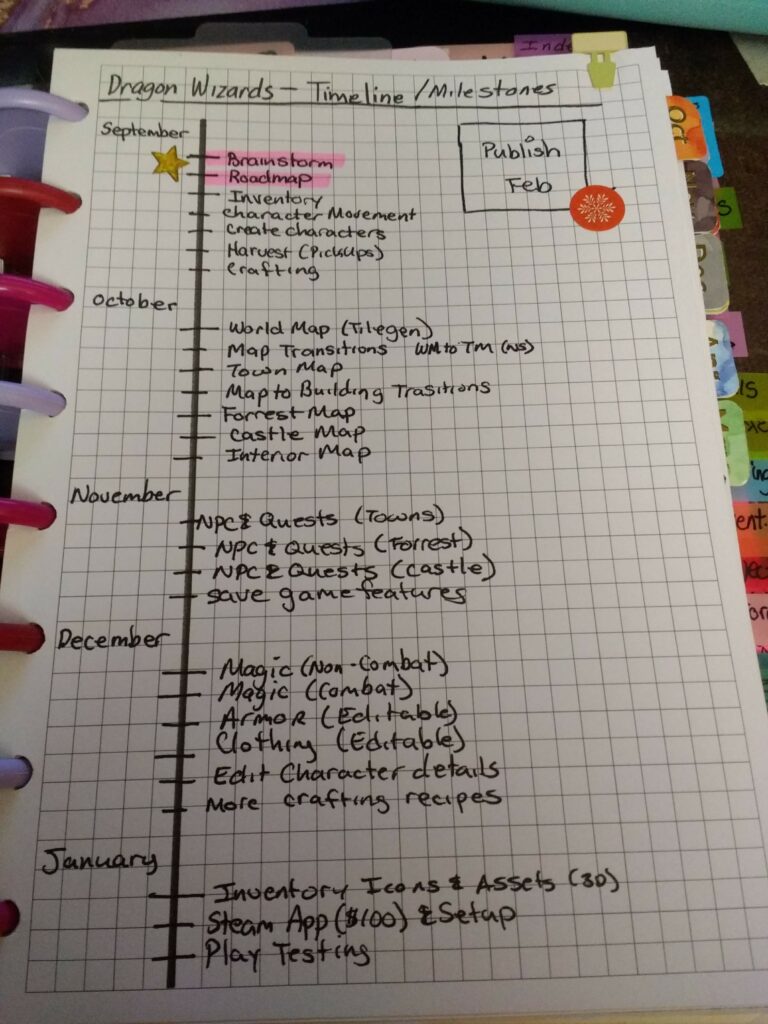 Index
Dragon Wizards - Timeline / Milestones
Publish
Feb
September
Brainstorm
Roadmap
Inventory
Character Movement
Create characters
Harvest (Pickups)
Crafting
October
World Map (Tilegen)
Map Transitions WM to TM (NS)
Town Map
Map to Building Trasitions
Forrest Map
Castle Map
Interior Map
November
NPC & Quests (Towns)
NPC & Quests (Forrest)
NPC & Quests (Castle)
save game features
December
Magic (Non-Combat)
Magic (Combat)
Armor (Editable)
Clothing (Editable)
Edit Character details
More crafting recipes
January
Inventory Icons & Assets (3D)
Steam App ($100) & Setup
Play Testing
Oct